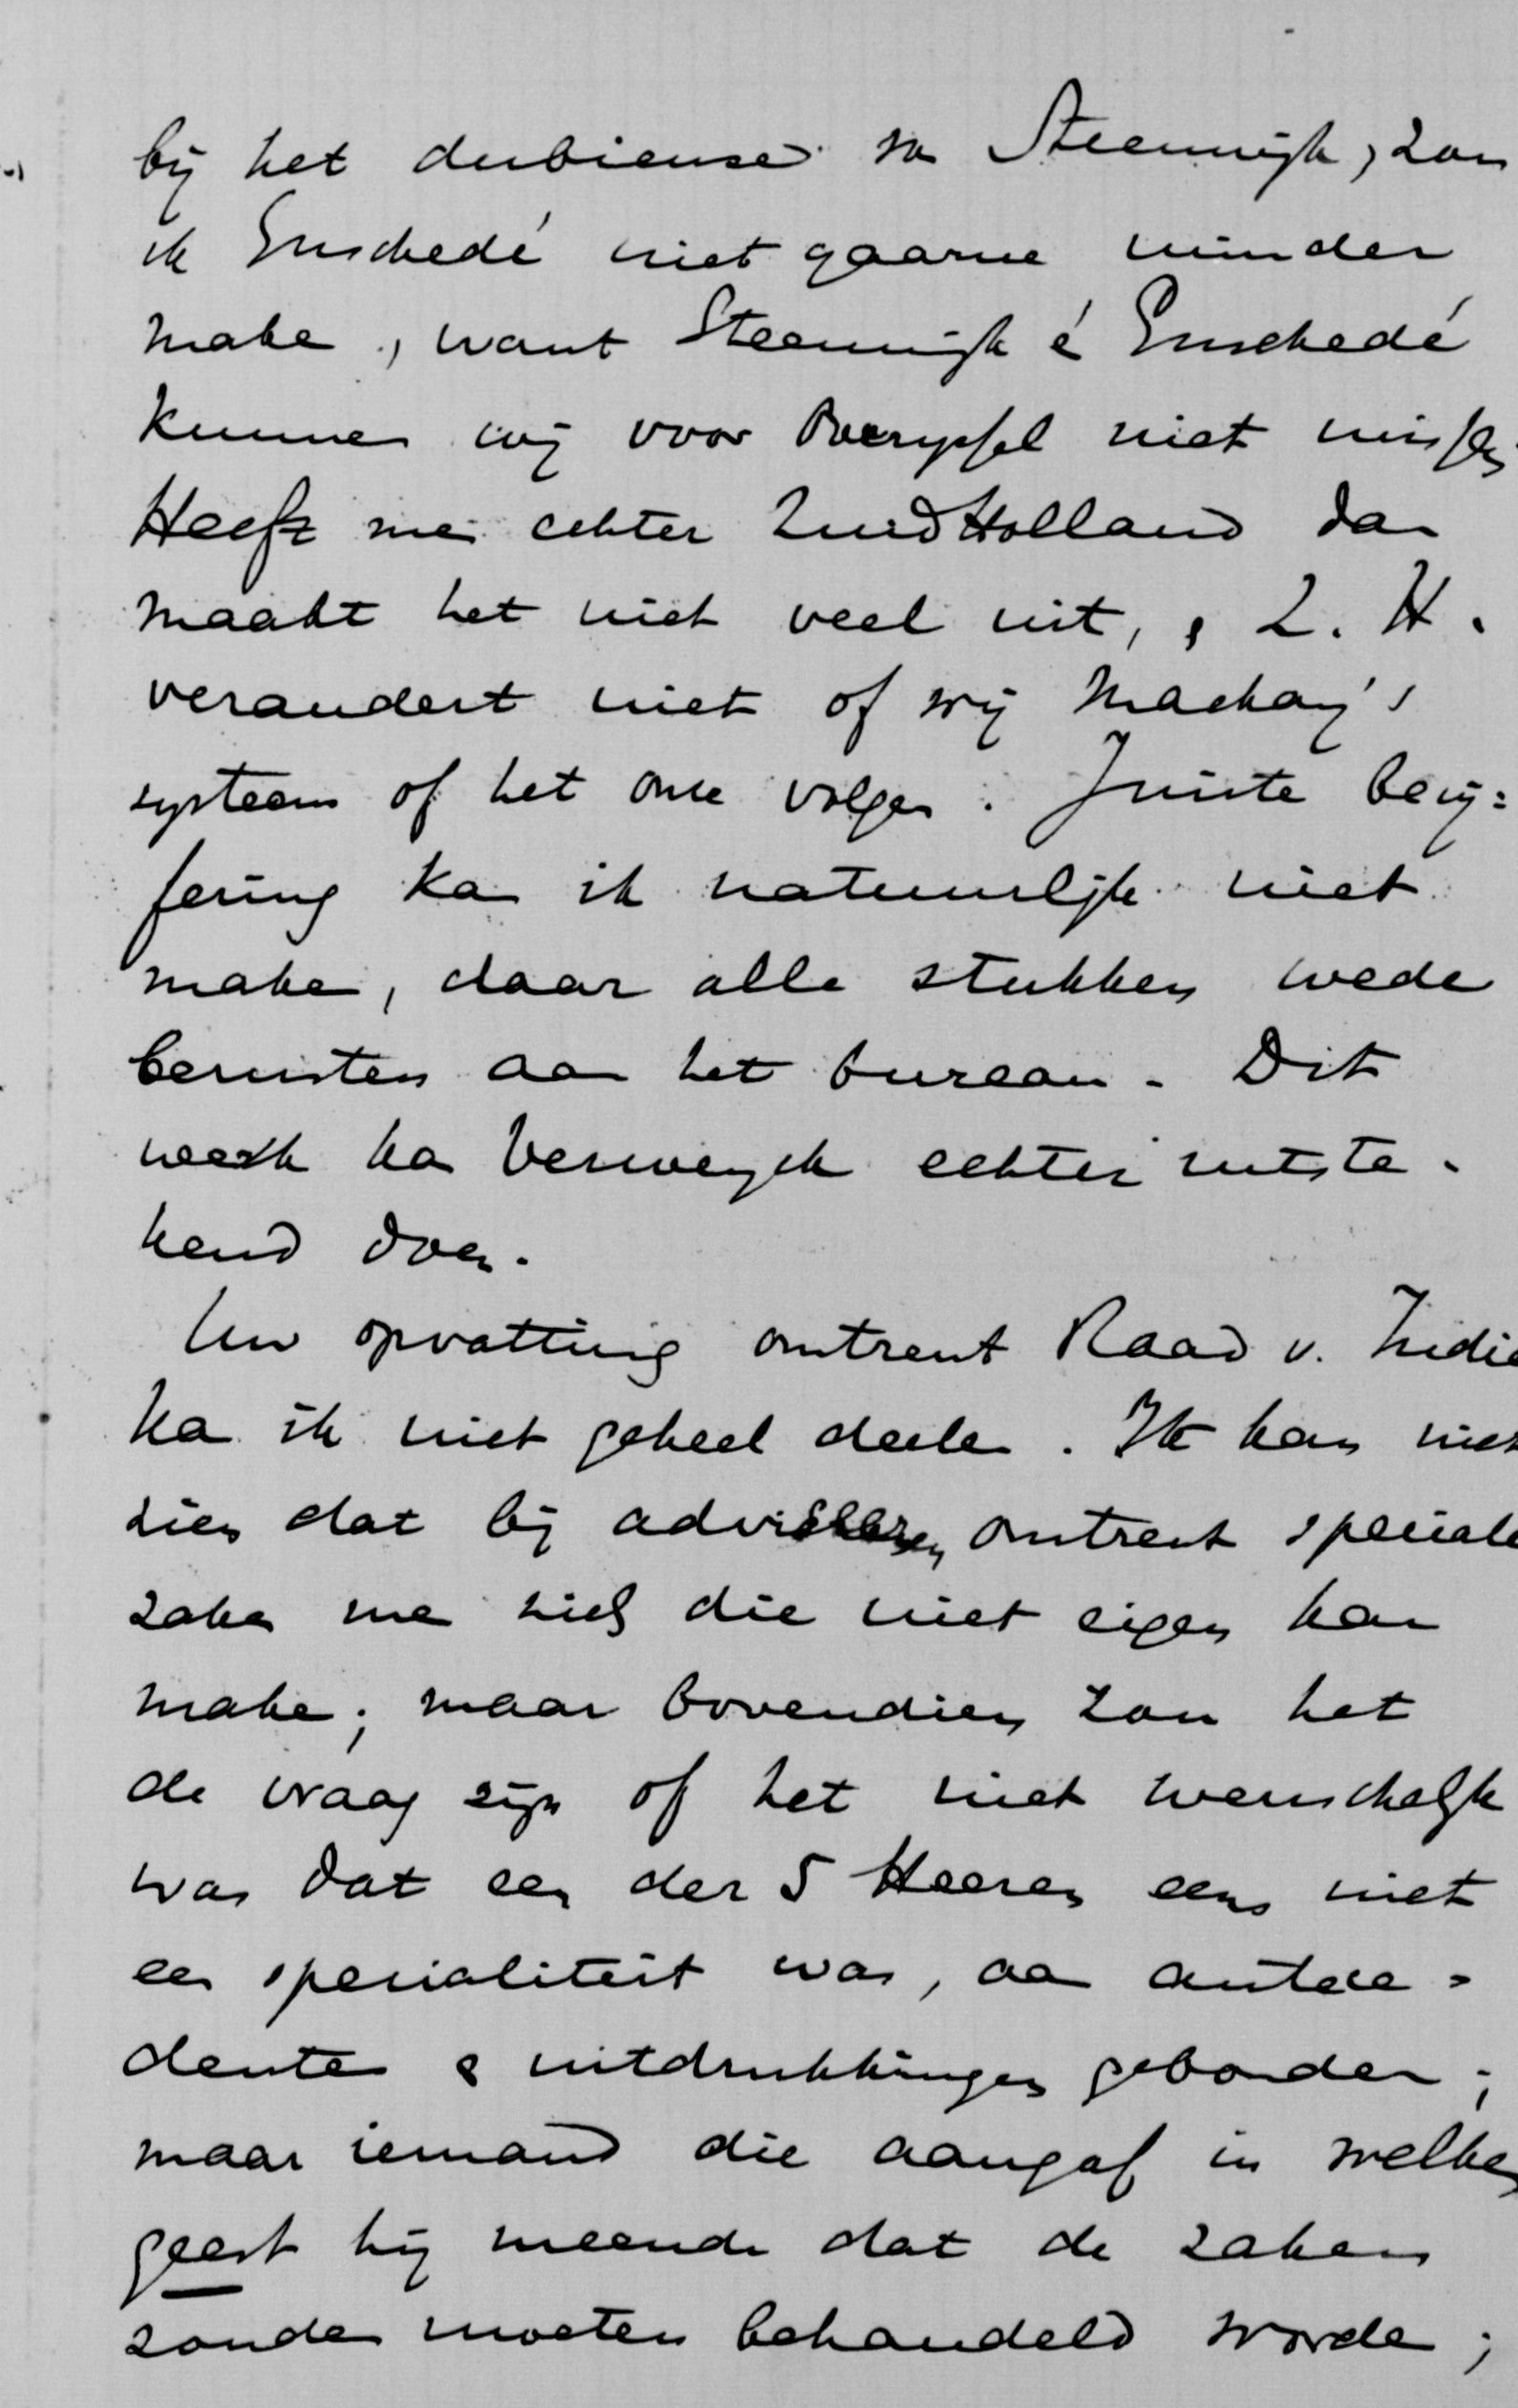 bij het dubieuse v Steenwijk, zou
ik Enschedé niet gaarne minder
make, want Steenwijk é Enschedé
kunnen wij voor Overyssel niet missen
Heeft me echter ZuidHolland dan
maakt het niet veel uit, & Z. H.
verandert niet of wij Mackay's
systeem of het onze volgen. Juiste becij=
fering ka ik natuurlijk niet
make, daar alle stukken mede
berusten aan het bureau. Dit
werk ka Verweyck echter uitste-
kend doen.
Uw opvatting omtrent Raad v. Indië
ka ik niet geheel deele. Ik kan niet
zien dat bij adviseeren omtrent speciale
zaken me zich die niet eigen kan
make; maar bovendien zou het
de vraag zijn of het niet wenschelijk
was dat een der 5 Heeren eens niet
een specialiteit was, aan antece=
denten & uitdrukkingen gebonden;
maar iemand die aangaf in welken
geest hij meende dat de zaken
zouden moeten behandeld worden;